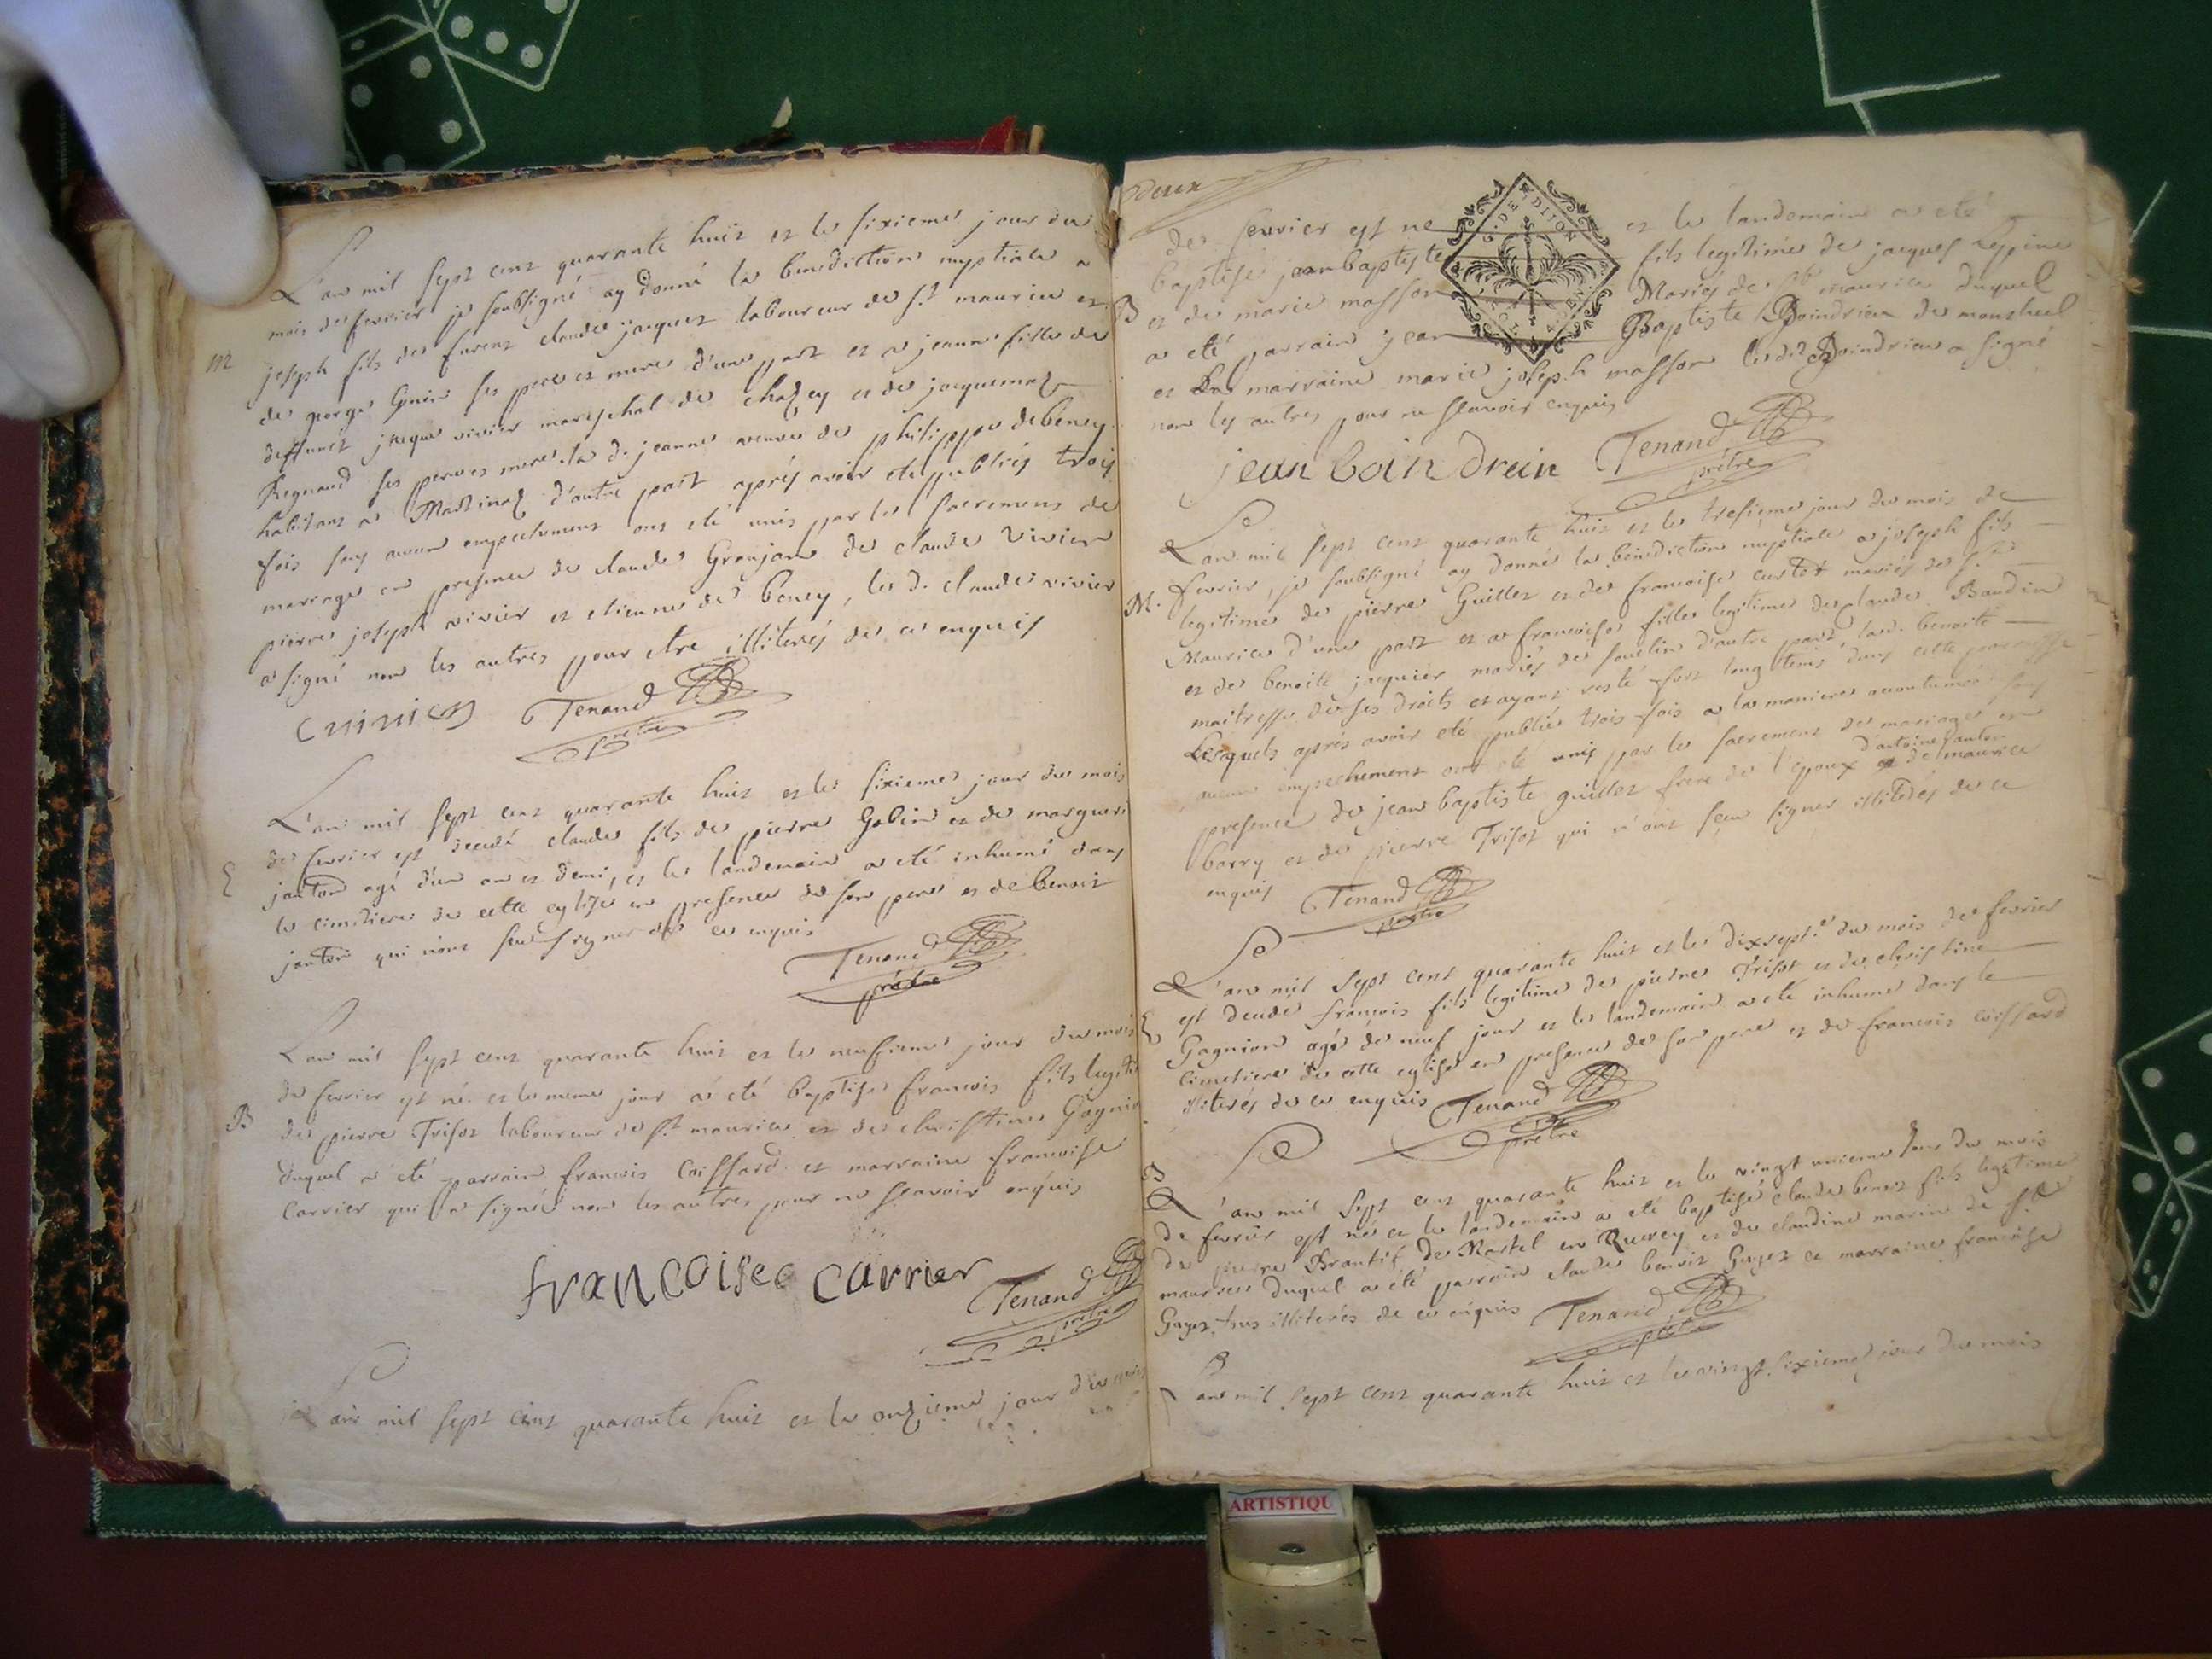 L'an mil sept cent quarante huit et le sixieme jour du
mois de fevrier je soubsigné ay donné la benediction nuptiale a
M
joseph fils de furent claude jacquet laboureur de st maurice et
de george ses pere et mere d'une part et a jeanne fille de
deffunct jacque vivier mareschal de chazey et de jacquemaz
Regnaud ses pere et mere la d. jeanne veuve de philippe debeney
habitant a Martinaz d'autre part aprés avoir eté publiés trois
fois sans aucun empechement ont eté unis par le sacrement de
mariage en presence de claude Granjan de claude vivier
pierre joseph vivier et etienne de beney, le d. claude vivier
a signé non les autres pour etre illiterés de ce enquis
C vivier Tenand
pretre
L'an mil sept cent quarante huit et le sixieme jour du mois
de fevrier est decedé claude fils de pierre Gobin et de margueri
E
janton agé d'un an et demi, et le landemain a eté inhumé dans
le cimitiere de cette eglise en presence de son pere et de benoit
janton qui n'ont sceu signer de ce enquis
Tenand
prêtre
L'an mil sept cent quarante huit et le neufvieme jour du mois
de fevrier est né et le meme jour a eté baptisé francois fils legiti
B
de pierre Trisot laboureur de st maurice et de christine Gagnio
duquel a eté parrain francois Coissard et marraine francoise
Carrier qui a signée non les autres pour ne scavoir enquis
francoise carrier
Tenand
pretre
L'an mil sept cent quarante huit et le onzieme jour du mois
deux
G. DE DIJON
de fevrier est né et le landemain a eté
baptisé jean baptiste fils legitime de jacques Lespine
B
et de marie masson Mariés de st maurice duquel
a eté parrain jean Baptiste Boindrieu de montheul
et la marraine marie joseph masson le dit Boindrieu a signé
non les autres pour ne scavoir enquis
jean boin Drein Tenand
prêtre
L'an mil sept cent quarante huit et le tresieme jour du mois de
fevrier, je soubsigné ay donné la benediction nuptiale a joseph fils
M.
legitime de pierre Guillet et de francoise curtet mariés de st
Maurice d'une part et a francoise fille legitime de claude Baudin
et de benoite jacquier mariés de d'autre part, lad. benoite
maitresse de ses droits et ayant resté fort long tems dans cette paroisse
Lesquels aprés avoir eté publiés trois fois a la maniere acoutumée sans
aucun empechement ont eté unis par le sacrement de mariage en
d'antoine
presence de jean baptiste guillet frere de l'epoux de maurice
barry et de pierre Trisot qui n'ont sceu signer illiterés de ce
enquis Tenand
prêtre
L'an mil sept cent quarante huit et le dixsept.e du mois de fevrier
est decedé francois fils legitime de pierre Trisot et de christine
E
Gagnion agé de neuf jour et le landemain a eté inhumé dans le
cimetiere de cette eglise en presence de son pere et de francois coissard
illiterés de ce enquis Tenand
prêtre
B
L'an mil sept cent quarante huit et le vingt unieme jour du mois
de fevrier est né et le landemain a eté baptisé claude benoit fils legitime
de pierre Brantif de Martel en Quercy et de claudine marin de st
maurice duquel a eté parrain claude benoit Guyet et marraine francoise
Guyet, tous illiterés de ce enquis Tenand
prêtre
L'an mil sept cent quarante huit et le vingt sixieme jour du mois
ARTISTIQU